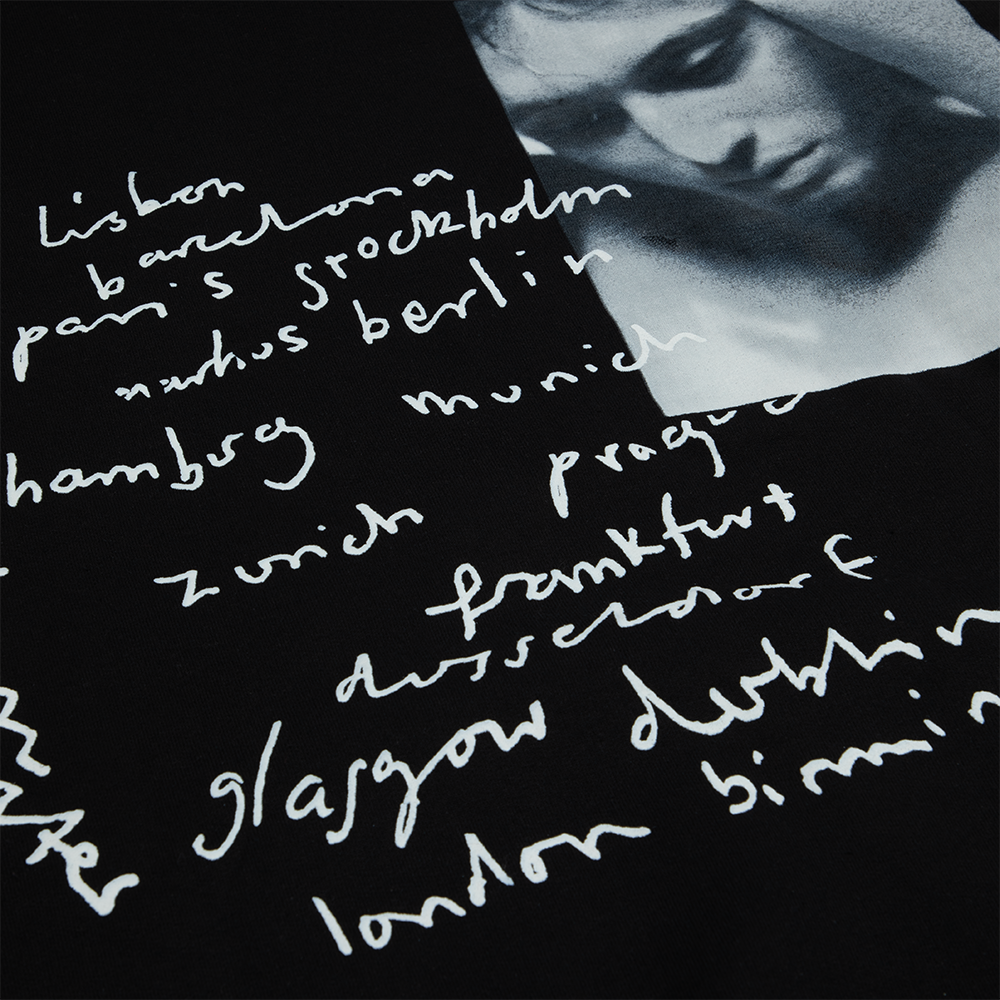 lisbon
barcelona
paris stockholm
berlin
munich
hamburg
prague
zurich
frankfurt
dusseldorf
dublin
glasgow
birmin
london